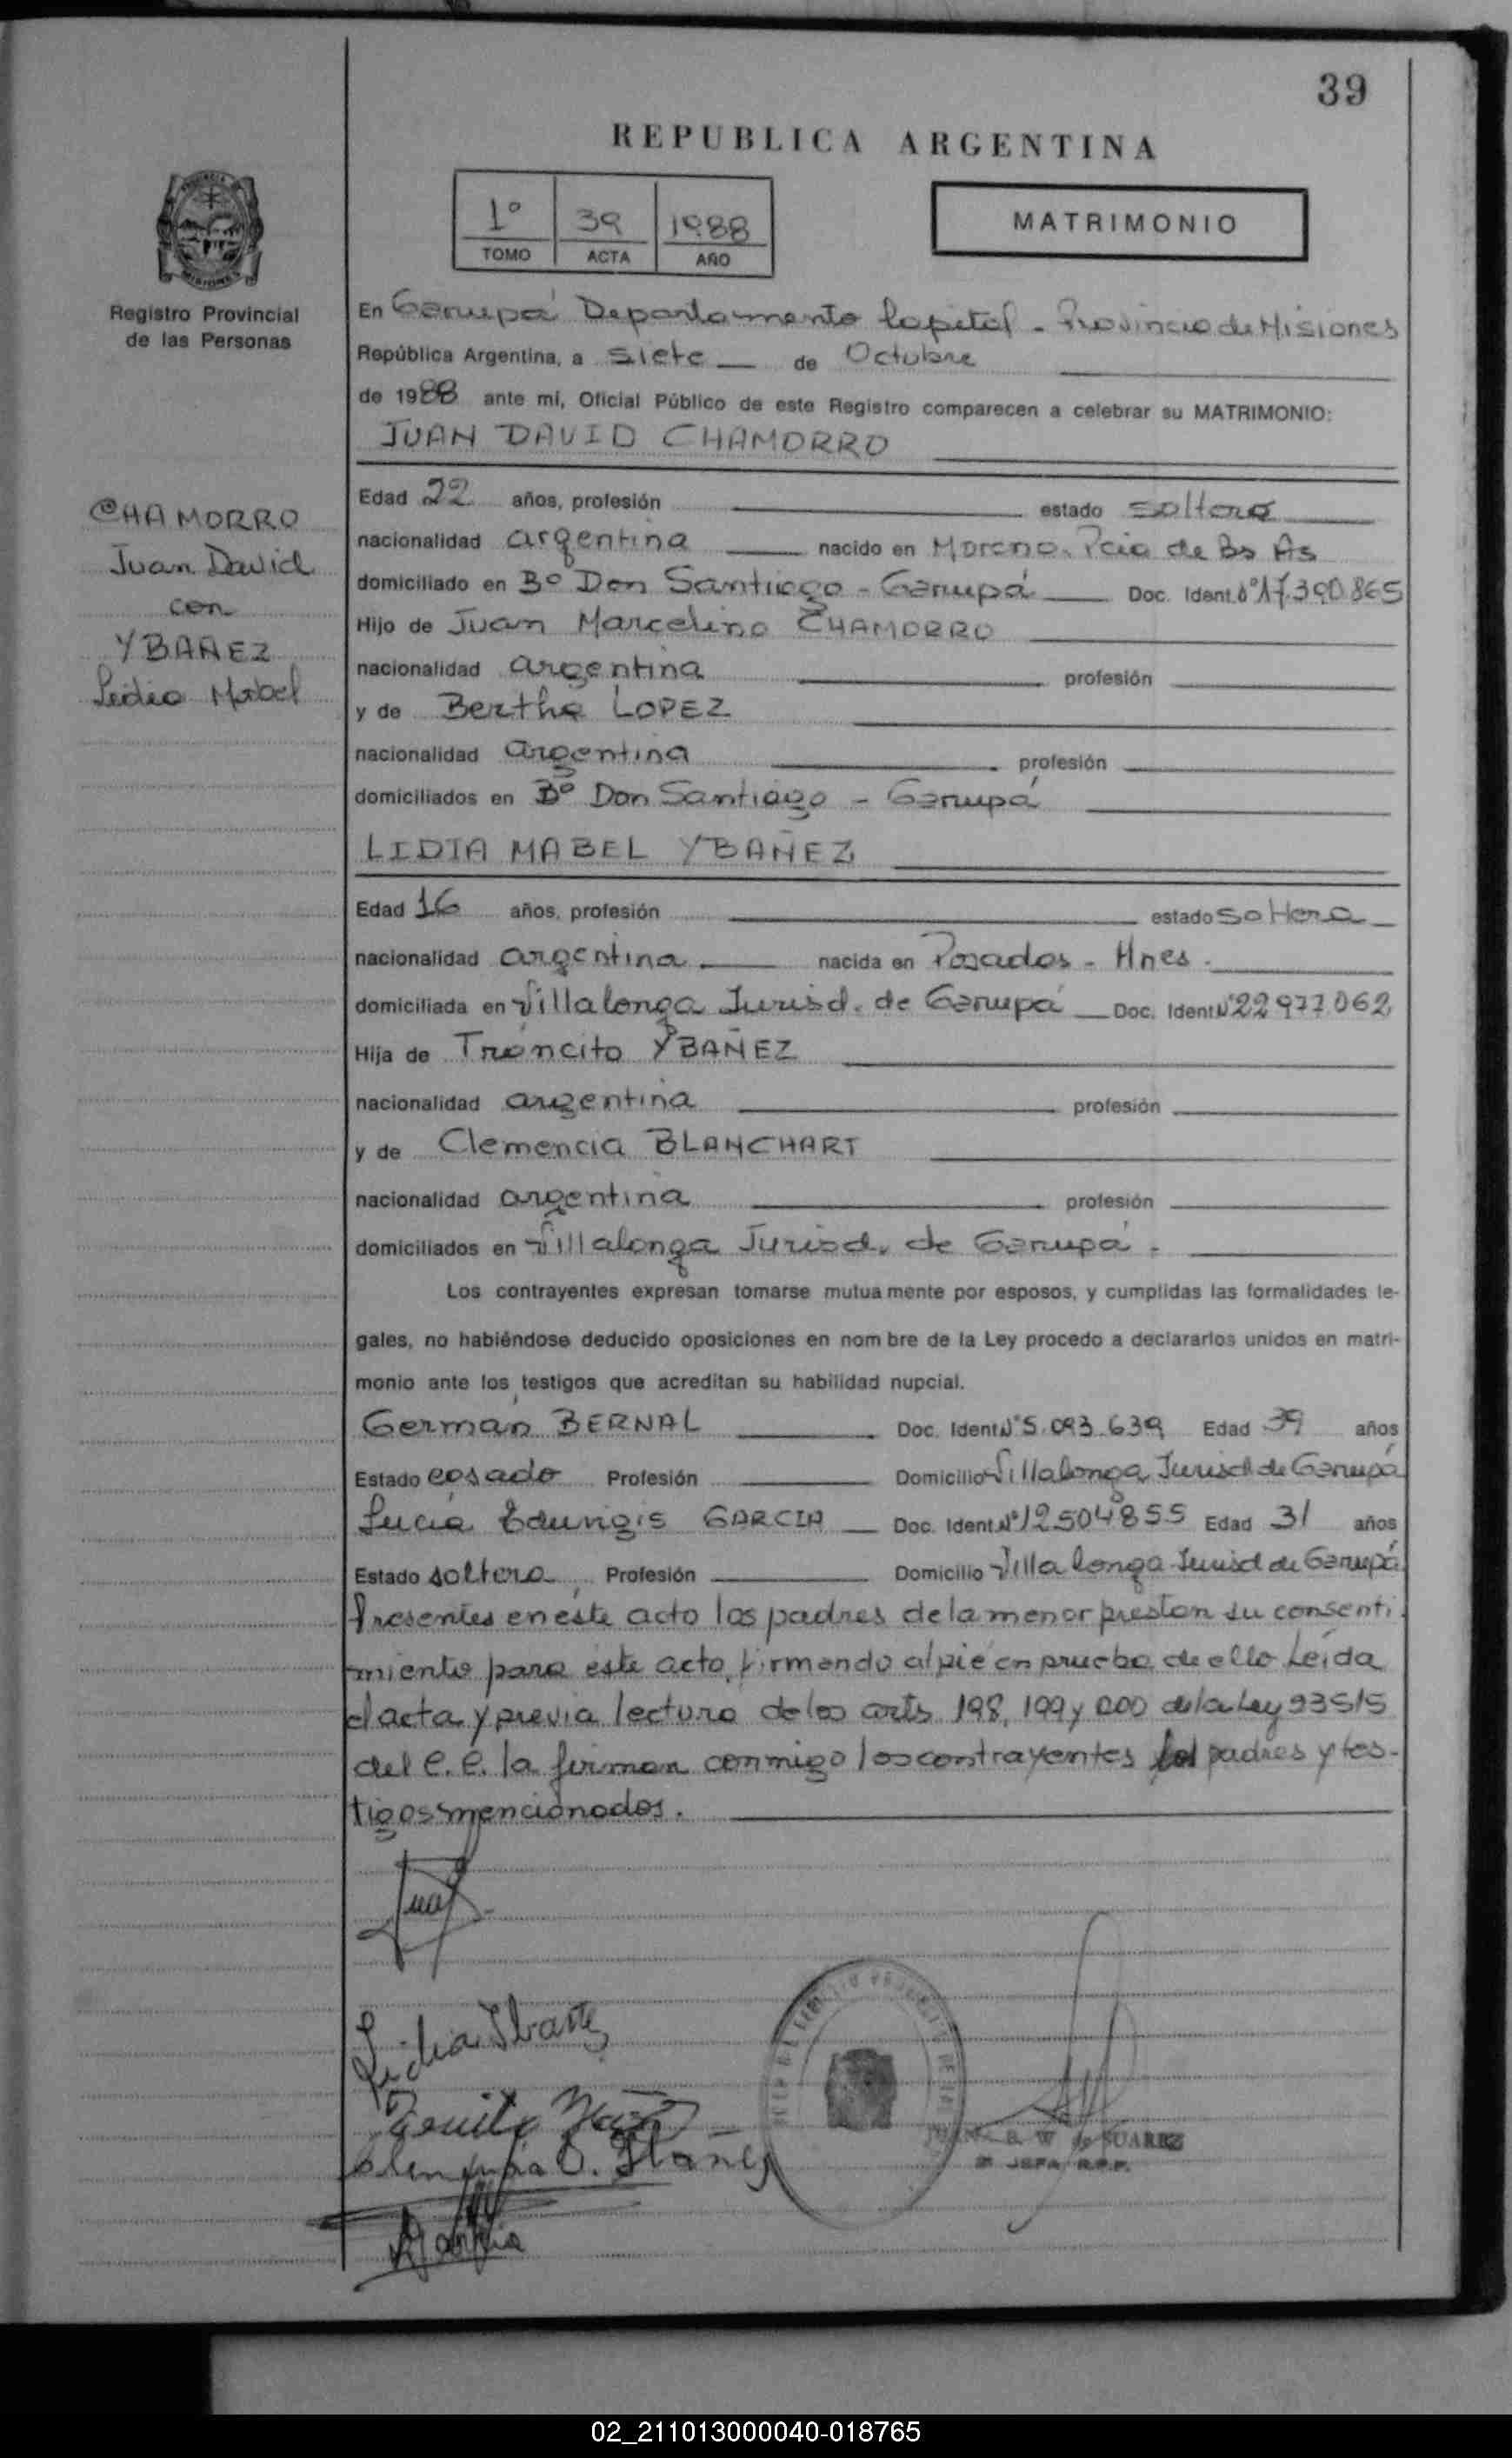 39
REPUBLICA ARGENTINA
1º 39 1988
TOMO ACTA AÑO
MATRIMONIO
Registro Provincial
de las Personas
CHAMORRO
Juan David
con
YBAÑEZ
Lidia Mabel
En Garupá Departamento Capital - Provincia de Misiones
República Argentina, a siete de Octubre
de 1988 ante mí, Oficial Público de este Registro comparecen a celebrar su MATRIMONIO:
JUAN DAVID CHAMORRO
Edad 22 años, profesión estado soltero
nacionalidad argentina nacido en Moreno. Pcia de Bs As
domiciliado en Bº Don Santiago - Garupá Doc. Ident. Nº 17.390.865
Hijo de Juan Marcelino CHAMORRO
nacionalidad argentina profesión
y de Bertha LOPEZ
nacionalidad argentina profesión
domiciliados en Bº Don Santiago - Garupá
LIDIA MABEL YBAÑEZ
Edad 16 años, profesión estado soltera
nacionalidad argentina nacida en Posadas - Mnes.
domiciliada en Villalonga Jurisd. de Garupá Doc. Ident Nº 22 977.062
Hija de YBAÑEZ
nacionalidad argentina profesión
y de Clemencia BLANCHART
nacionalidad argentina profesión
domiciliados en Villalonga Jurisd. de Garupá.
Los contrayentes expresan tomarse mutua mente por esposos, y cumplidas las formalidades le-
gales, no habiéndose deducido oposiciones en nom bre de la Ley procedo a declararlos unidos en matri-
monio ante los testigos que acreditan su habilidad nupcial.
Germán BERNAL Doc. Ident Nº 5.093.639 Edad 39 años
Estado casado Profesión Domicilio Villalonga Jurisd de Garupá
Lucía GARCIA Doc. Ident. Nº 12504855 Edad 31 años
Estado soltera Profesión Domicilio Villalonga Jurisd de Garupá
Presentes en este acto los padres de la menor prestan su consenti
miento para este acto, firmando al pié en prueba de ello Leída
el acta y previa lectura de los arts 198, 199 y 200 de la Ley 23515
del C.C. la firman conmigo los contrayentes los padres y tes-
tigos mencionados.
Juan
Lidia
Ibañez
Garcia
B. W de SUAREZ
JEFA R.P.P.
02_211013000040-018765